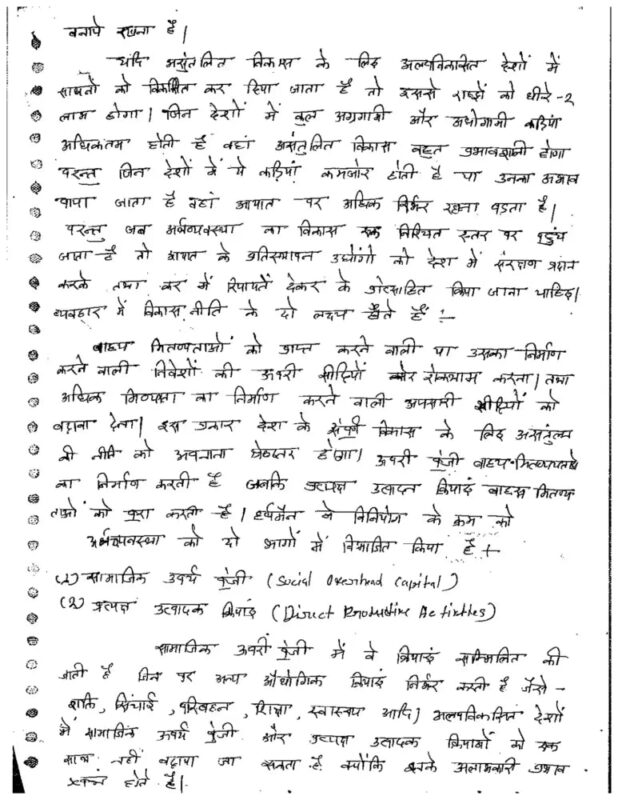 बनाये रखना है।
यदि असंतुलित विकास के लिए अल्पविकसित देशों में
साधनों को विकसित कर दिया जाता है तो इससे राष्ट्रों को धीरे-२
लाभ होगा। जिन देशों में कुल अग्रगामी और अधोगामी कड़ियां
अधिकतम होती हैं वहां असंतुलित विकास बहुत प्रभावशाली होगा
परन्तु जिन देशों में ये कड़ियां कमजोर होती है या उनका अभाव
पाया जाता है वहां आयात पर अधिक निर्भर रहना पड़ता है।
परन्तु जब अर्थव्यवस्था का विकास एक निश्चित स्तर पर पहुंच
जाता है तो आयात के प्रतिस्थापन उद्योगों को देश में संरक्षण प्रदान
करके तथा कर में रियायतें देकर के प्रोत्साहित किया जाना चाहिए।
व्यवहार में विकास नीति के दो लक्ष्य होते हैं :-
बाह्य मितव्ययताओं को प्राप्त करने वाली या उसका निर्माण
करने वाली निवेशों की ऊपरी सीढ़ियों रोकथाम करना। तथा
अधिक का निर्माण करने वाली सीढ़ियों को
बढ़ावा देना। इस प्रकार देश के संपूर्ण विकास के लिए असंतुलन
की नीति को अपनाना होगा। ऊपरी पूंजी बाह्य मितव्ययताओं
का निर्माण करती है जबकि प्रत्यक्ष उत्पादन क्रियाएं बाह्य मितव्य
ताओं को पूरा करती है। हर्षमैन ने विनियोग के क्रम को
अर्थव्यवस्था को दो भागों में विभाजित किया है -
(1) सामाजिक उपर्य पूंजी (Social Overhead Capital)
(2) प्रत्यक्ष उत्पादक क्रियाएं (Direct Productive Activities)
सामाजिक ऊपरी पूंजी में वे क्रियाएं सम्मिलित की
जाती है जिन पर अन्य औद्योगिक क्रियाएं निर्भर करती है जैसे -
शक्ति, सिंचाई, परिवहन, शिक्षा, स्वास्थ्य आदि। अल्पविकसित देशों
में सामाजिक ऊपर्य पूंजी और प्रत्यक्ष उत्पादक क्रियाओं को एक
साथ नहीं बढ़ाया जा सकता है क्योंकि इनके अलाभकारी प्रभाव
उत्पन्न होते है।